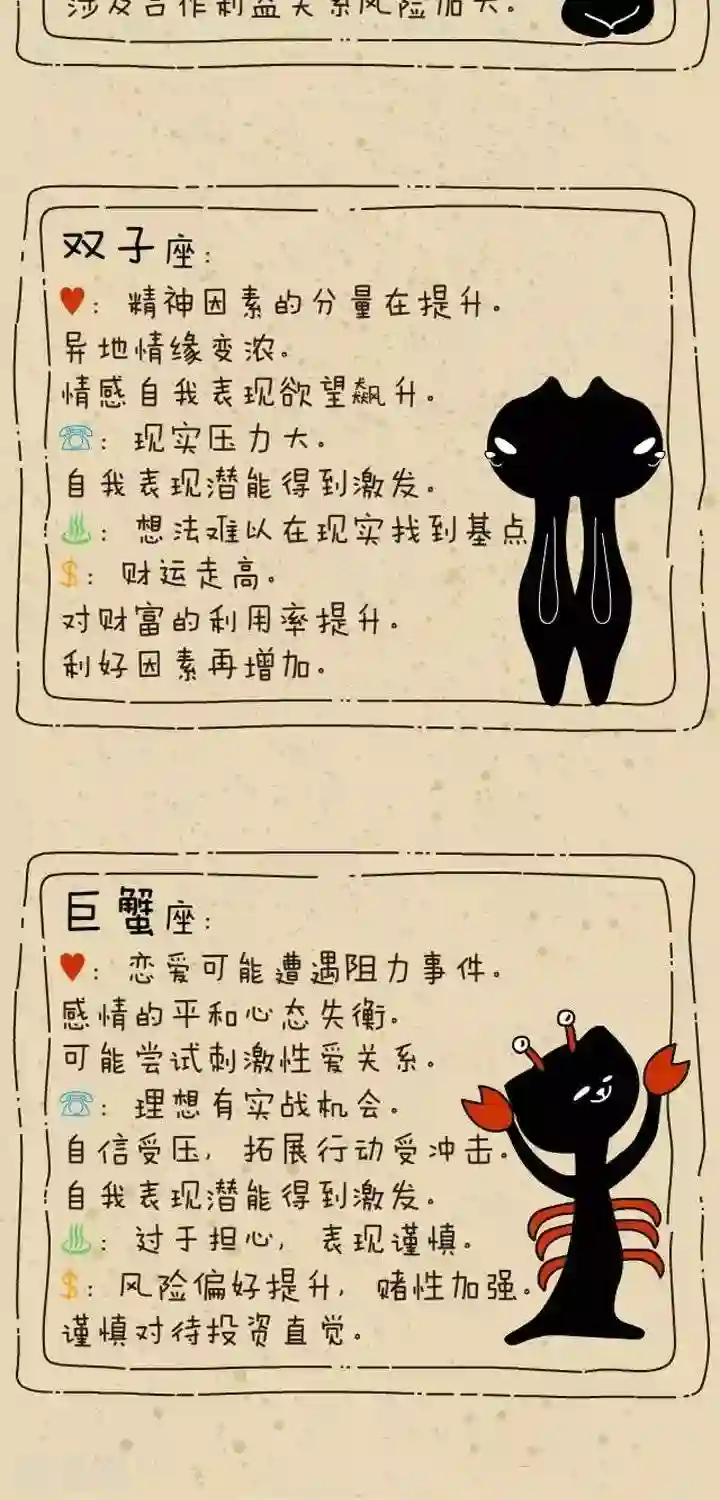 涉及合作利益关系风险加大。
双子座:
♥: 精神因素的分量在提升。
异地情缘变浓。
情感自我表现欲望飙升。
☎: 现实压力大。
自我表现潜能得到激发。
♨: 想法难以在现实找到基点
$: 财运走高。
对财富的利用率提升。
利好因素再增加。
巨蟹座:
♥: 恋爱可能遭遇阻力事件。
感情的平和心态失衡。
可能尝试刺激性爱关系。
☎: 理想有实战机会。
自信受压, 拓展行动受冲击。
自我表现潜能得到激发。
♨: 过于担心, 表现谨慎。
$: 风险偏好提升, 赌性加强。
谨慎对待投资直觉。